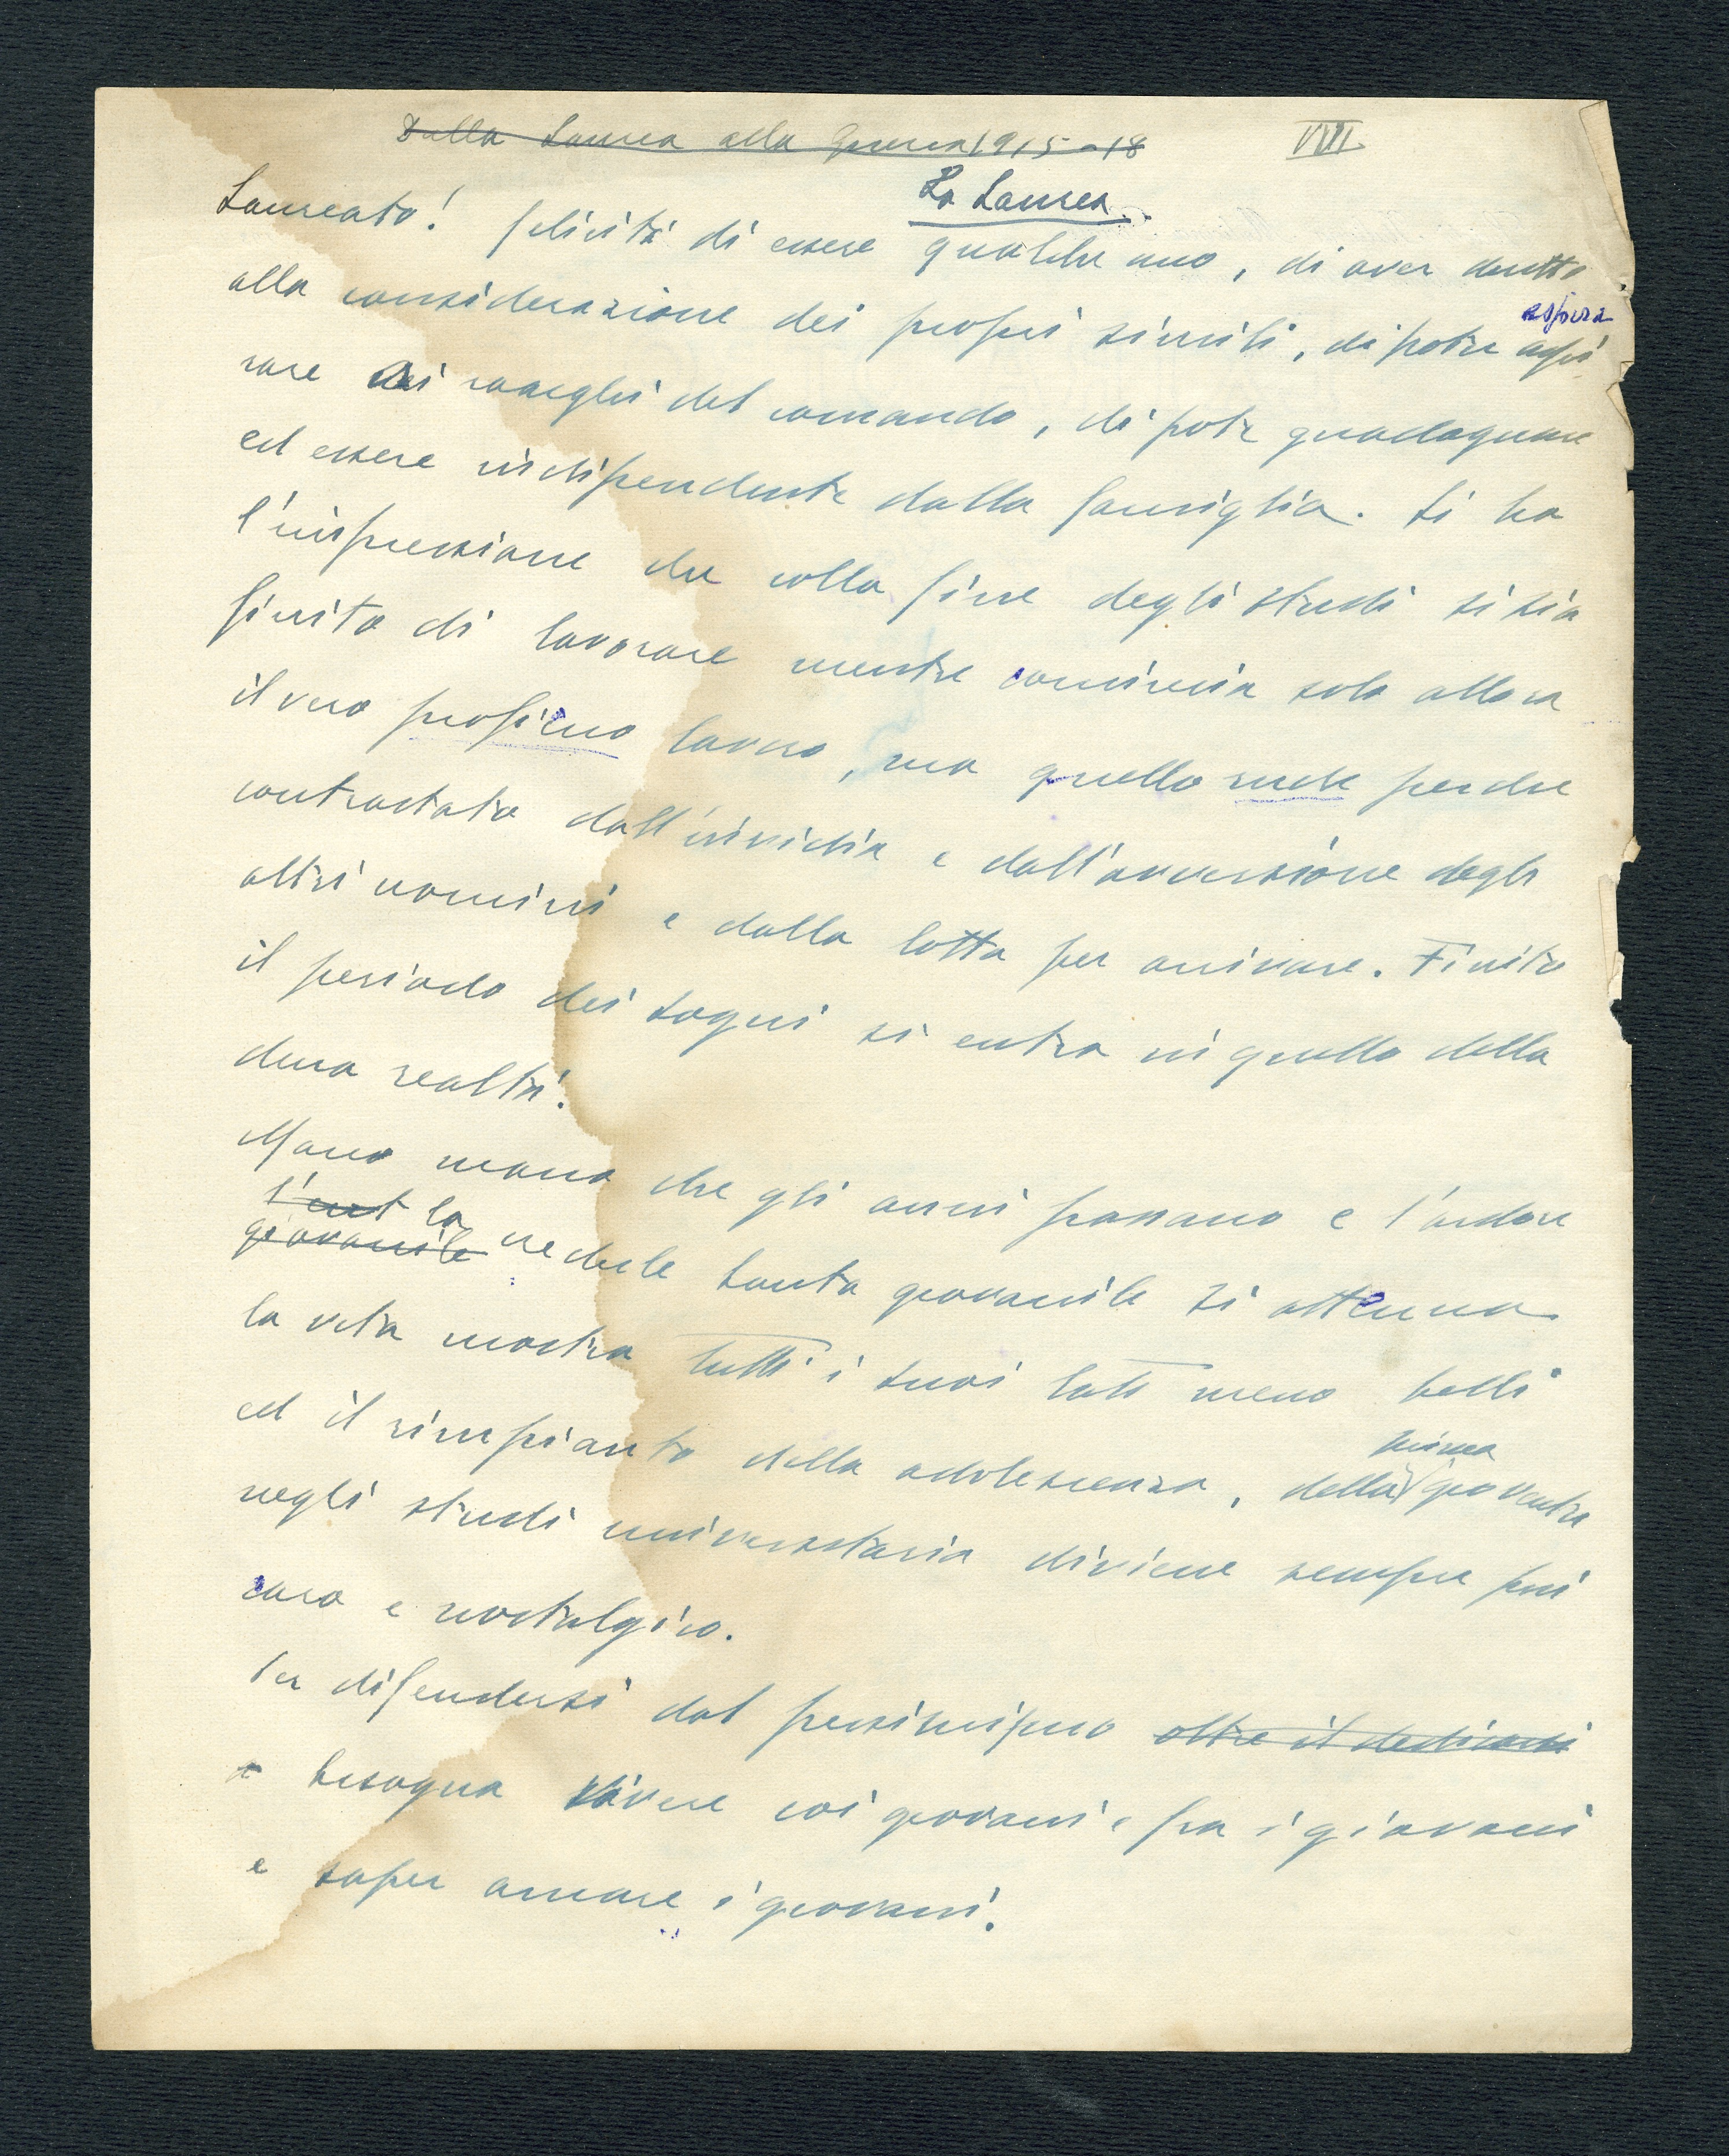 Dalla Laurea alla Guerra 1915-18
VIII
La Laurea.
Laureato! felicità di essere qualche uno, di aver diritto
alla considerazione dei propri simili, di poter aspi
aspira
rare ai consigli del comando, di poter guadagnare
ed essere indipendente dalla famiglia. Si ha
l'impressione che colla fine degli studi si sia
finito di lavorare mentre comincia solo allora
il vero proficuo lavoro, ma quello rude perche
contrastato dall'invidia e dall'avversione degli
altri uomini e dalla lotta per arrivare. Finito
il periodo dei sogni si entra in quello della
dura realtà!
Mano mano che gli anni passano e l'ardore
l'ent la
giovanile credule santa giovanile si attenua
la vita mostra tutti i suoi lati meno belli
ed il rimpianto della adolescenza, della gioventu
prima
negli studi universitaria diviene sempre più
caro e nostalgico.
Per difendersi dal pessimismo oltre il dedicarsi
a bisogna vivere coi giovani e fra i giovani
e saper amare i giovani.